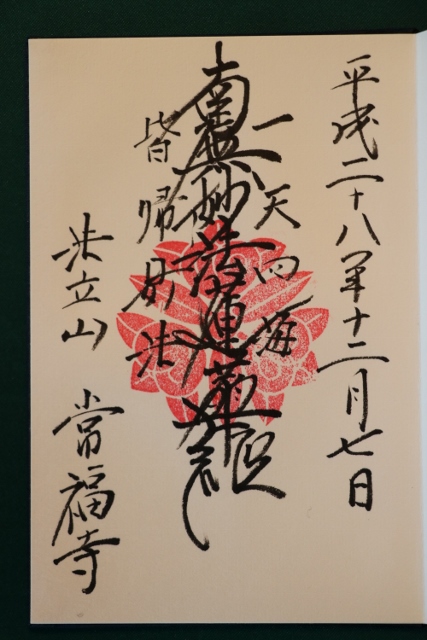 平成二十八年十二月七日
一天四海
南無妙法蓮華経
皆帰妙法
法立山 常福寺